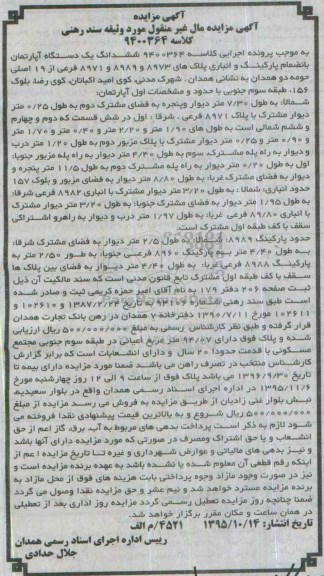 آگهی مزایده
آگهی مزایده مال غیر منقول مورد وثیقه سند رهنی
کلاسه ۹۴۰۰۳۶۴
به موجب پرونده اجرایی کلاسه ۹۴۰۰۳۶۴ ششدانگ یک دستگاه آپارتمان
بانضمام پارکینگ و انباری پلاک های ۸۹۷۲ و ۸۹۸۹ و ۸۹۷۱ فرعی از ۱۹ اصلی
حومه دو همدان به نشانی همدان . شهرک مدنی، کوی امید اکباتان، کوی رضا، بلوک
۱۵۶، طبقه سوم جنوبی با حدود و مشخصات اول آپارتمان:
شمالا: به طول ۷/۳۰ متر دیوار وپنجره به فضای مشترک دوم به طول ۰/۲۵ متر
دیوار مشترک با پلاک ۸۹۷۱ فرعی . شرقا : اول در شش قسمت که دوم و چهارم
و ششم شمالی است به طول های ۱/۹۰ متر و ۲/۲۰ متر و ۰/۴۰ متر و ۱/۷۰ متر
و ۰/۹۰ متر و ۰/۲۵ متر دیوار مشترک با پلاک مزبور دوم به طول ۱/۲۰ متر درب
و دیوار به راه پله مشترک، سوم به طول ۴/۳۰ متر دیوار به راه پله مزبور جنوبا:
اول به طول ۰/۲۰ متر دیوار به راه پله مشترک دوم به طول ۱۱/۵ متر پنجره و
دیوار به فضای مشترک غربا: به طول ۸/۸۰ متر دیوار به فضای مزبور و بلوک ۱۵۷
حدود انباری: شمالا : به طول ۳/۲۰ متر دیوار مشترک با انباری ۸۹۸۲ فرعی شرقا:
به طول ۱/۹۵ متر دیوار به فضای مشترک جنوبا: به طول ۳/۲۰ متر دیوار مشترک
با انباری ۸۹/۸۰ فرعی غربا: به طول ۱/۹۷ متر درب و دیوار به راهرو اشتراکی
سقف با کف طبقه اول مشترک است.
حدود پارکینگ ۸۹۸۹: شمالا: به طول ۲/۵ متر دیوار به فضای مشترک شرقا:
به طول ۴/۴۰ متر به پلاک ۸۹۶۰ فرعی جنوبا: به طور ۲/۵۰ متر به
پارکینگ ۸۹۸۸ فرعی غربا: به طول ۴/۴۰ متر دیوار به فضای بین پلاک ها
سقف با کف طبقه اول مشترک تابع قانون مدنی است که سند مالکیت آن ذیل
ثبت صفحه ۲۰۶ دفتر ۱۷۹ به نام آقای امیر حمزه کریمی ثبت و صادر شده
است طبق سند رهنی شماره ۹۴۰۱۶ به تاریخ ۱۳۸۷/۰۲/۲۲ و ۱۰۴۶۱۰ و
۱۰۴۶۱۱ مورخ ۱۳۹۰/۷/۱۱ دفترخانه ۷ همدان در رهن بانک تجارت همدان
قرار گرفته و طبق نظر کارشناس رسمی به مبلغ ۵۰۰/۰۰۰/۰۰۰ ریال ارزیابی
شده و پلاک فوق دارای ۹۴/۰۷ متر مربع اعیانی در طبقه سوم جنوبی مجتمع
مسکونی با قدمت حدودا ۲۰ سال و دارای انشعابات است که برابر گزارش
کارشناس منتخب در تصرف راهن می باشد ضمنا مورد مزایده دارای بیمه تا
تاریخ ۱۳۹۶/۹/۳۰ می باشد پلاک فوق از ساعت ۹ الی ۱۲ روز چهارشنبه مورخ
۱۳۹۵/۱۱/۶ در اداره اجرای اسناد رسمی همدان واقع در بلوار سعیدیه،
نبش بلوار غنی زادیان از طریق مزایده به فروش می رسد مزایده از مبلغ
۵۰۰/۰۰۰/۰۰۰ ریال شروع و به بالاترین قیمت پیشنهادی نقدا فروخته می
شود لازم به ذکر است پرداخت بدهی های مربوط به آب، برق، گاز اعم از حق
انشعاب و یا حق اشتراک ومصرف در صورتی که مورد مزایده دارای آنها باشد
و نیز بدهی های مالیاتی و عوارض شهرداری و غیره تا تاریخ مزایده اعم از
اینکه رقم قطعی آن معلوم شده یا نشده باشد به عهده برنده مزایده است و
نیز در صورت وجود مازاد وجوه پرداختی بابت هزینه های فوق از محل مازاد به
برنده مزایده مسترد خواهد شد و نیم عشر و حق مزایده نقدا وصول می گردد
ضمنا چنانچه روز مزایده تعطیل رسمی گردد مزایده روز اداری بعد از تعطیلی
در همان ساعت و مکان مقرر برگزار خواهد شد.
تاریخ انتشار: ۱۳۹۵/۱۰/۱۴ ۴۵۲۱/م الف
رییس اداره اجرای اسناد رسمی همدان
جلال حدادی